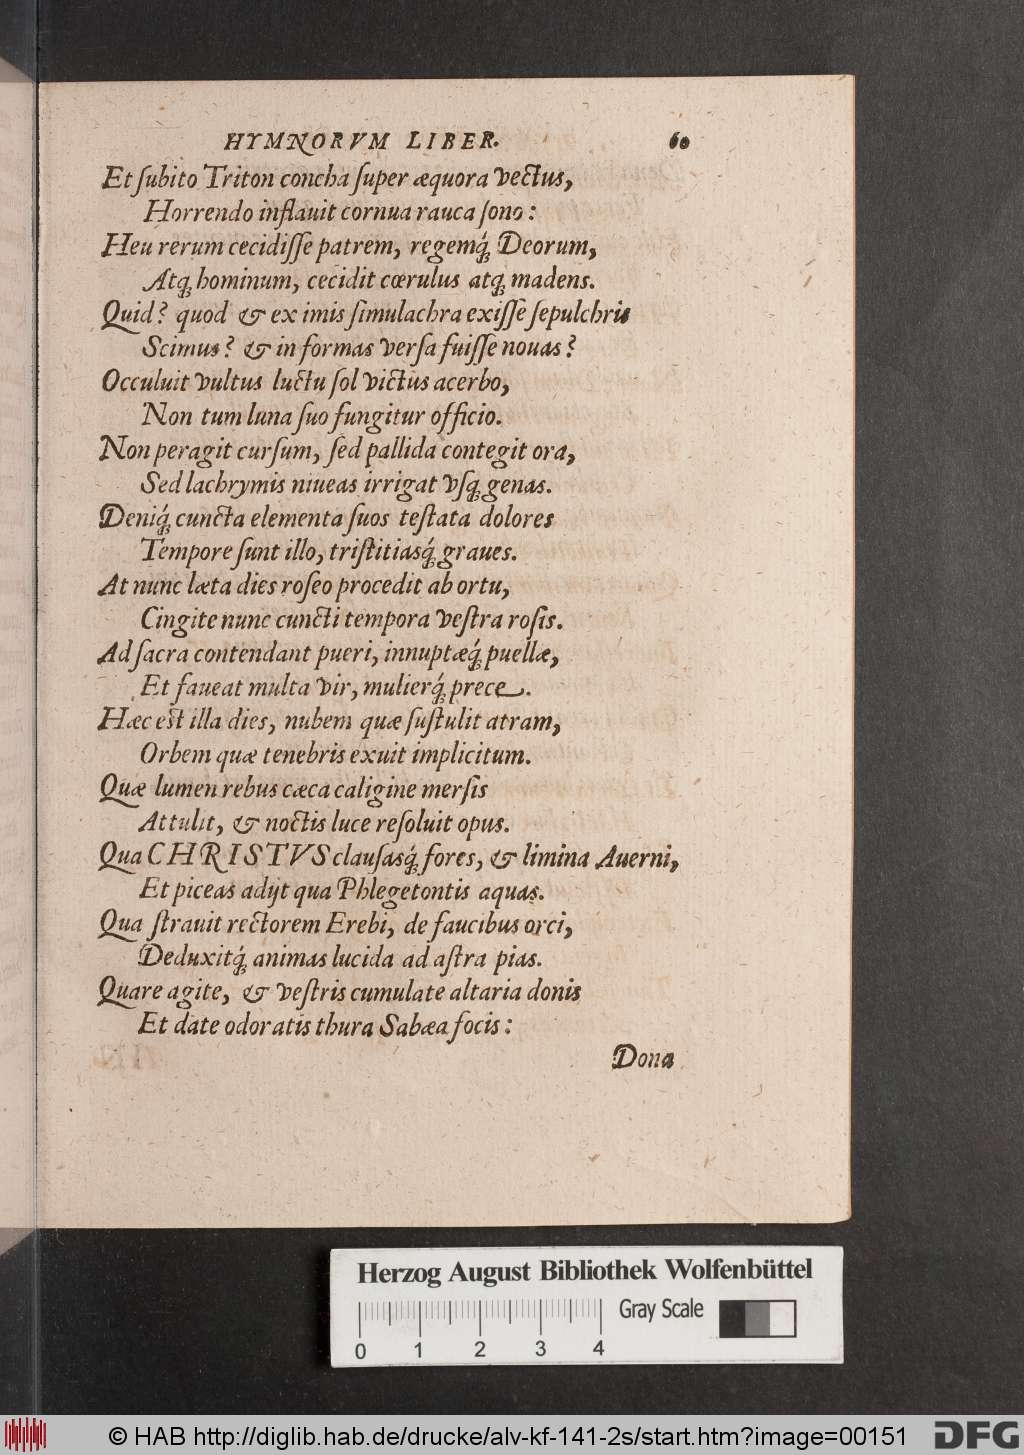 HYMNORVM LIBER. 60
Et ſubito Triton concha ſuper æquora vectus,
Horrendo inflauit cornua rauca ſono:
Heu rerum cecidiſſe patrem, regemq́; Deorum,
Atq; hominum, cecidit cœrulus atq; madens.
Quid? quod & ex imis ſimulachra exiſſe ſepulchris
Scimus? & in formas verſa fuiſſe nouas?
Occuluit vultus luctu ſol victus acerbo,
Non tum luna ſuo fungitur officio.
Non peragit curſum, ſed pallida contegit ora,
Sed lachrymis niueas irrigat vſq; genas.
Deniq́; cuncta elementa ſuos teſtata dolores
Tempore ſunt illo, triſtitiasq́; graues.
At nunc læta dies roſeo procedit ab ortu,
Cingite nunc cuncti tempora veſtra roſis.
Ad ſacra contendant pueri, innuptæq́; puellæ,
Et faueat multa vir, mulierq́; prece.
Hæc eſt illa dies, nubem quæ ſuſtulit atram,
Orbem quæ tenebris exuit implicitum.
Quæ lumen rebus cæca caligine merſis
Attulit, & noctis luce reſoluit opus.
Qua CHRISTVS clauſasq́; fores, & limina Auerni,
Et piceas adijt qua Phlegetontis aquas.
Qua ſtrauit rectorem Erebi, de faucibus orci,
Deduxitq́; animas lucida ad aſtra pias.
Quare agite, & veſtris cumulate altaria donis
Et date odoratis thura Sabæa focis:
Dona
Herzog August Bibliothek Wolfenbüttel
Gray Scale
0 1 2 3 4
© HAB http://diglib.hab.de/drucke/alv-kf-141-2s/start.htm?image=00151
DFG